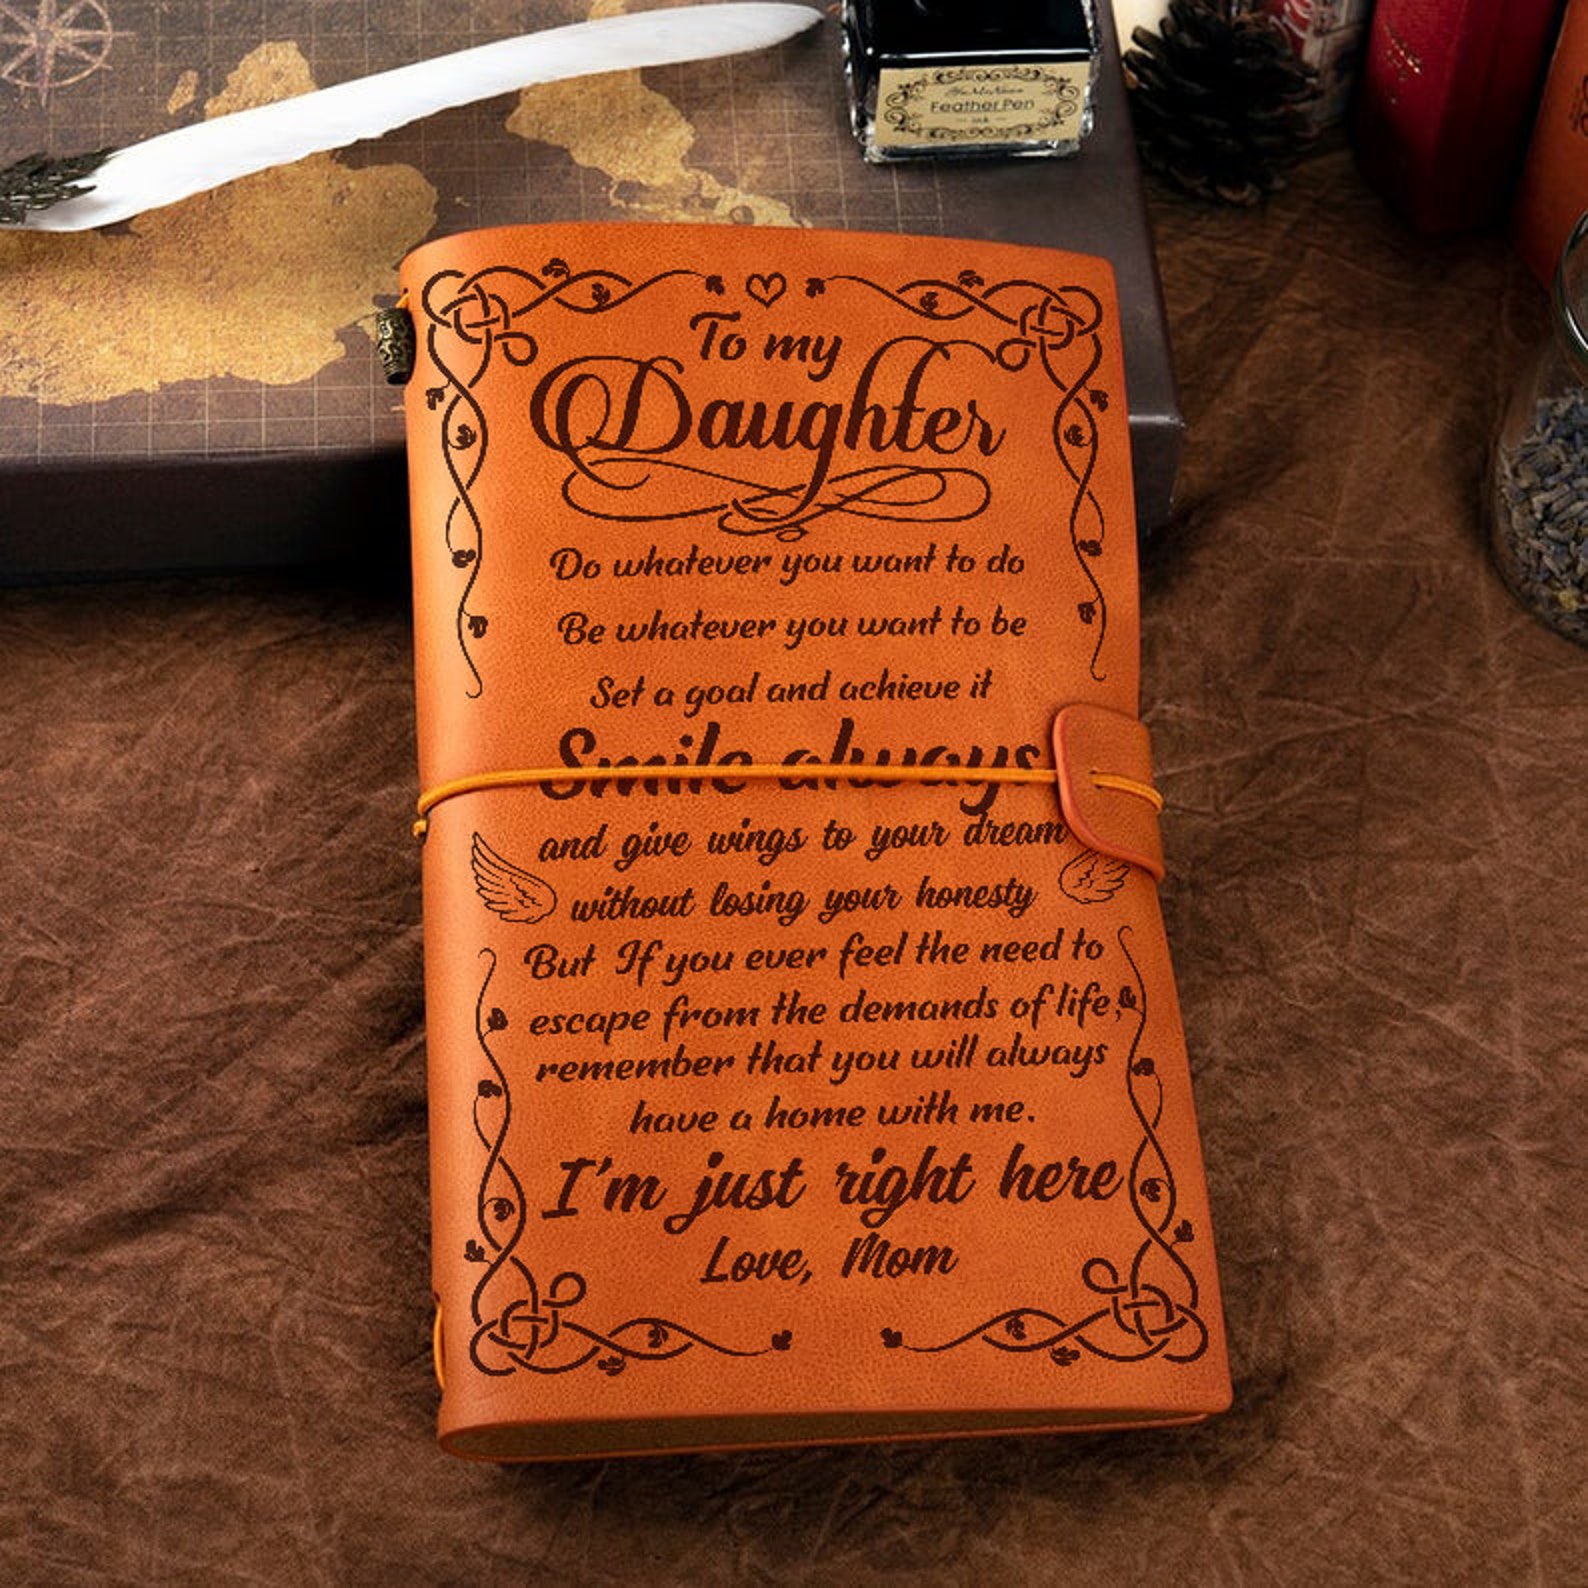 Feather Pen
ink
To my
Daughter
Do whatever you want to do
Be whatever you want to be
Set a goal and achieve it
Smile always
and give wings to your dream
without losing your honesty
But If you ever feel the need to
escape from the demands of life,
remember that you will always
have a home with me.
I'm just right here
Love, Mom